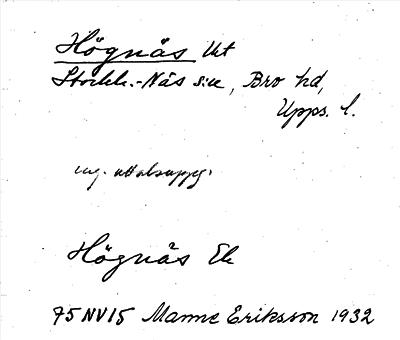 Högnäs Ut
Stockh.-Näs s:n, Bro hd,
Upps. l.
ing. uttalsuppg.
Högnäs Ek
75 NV 15 Manne Eriksson 1932